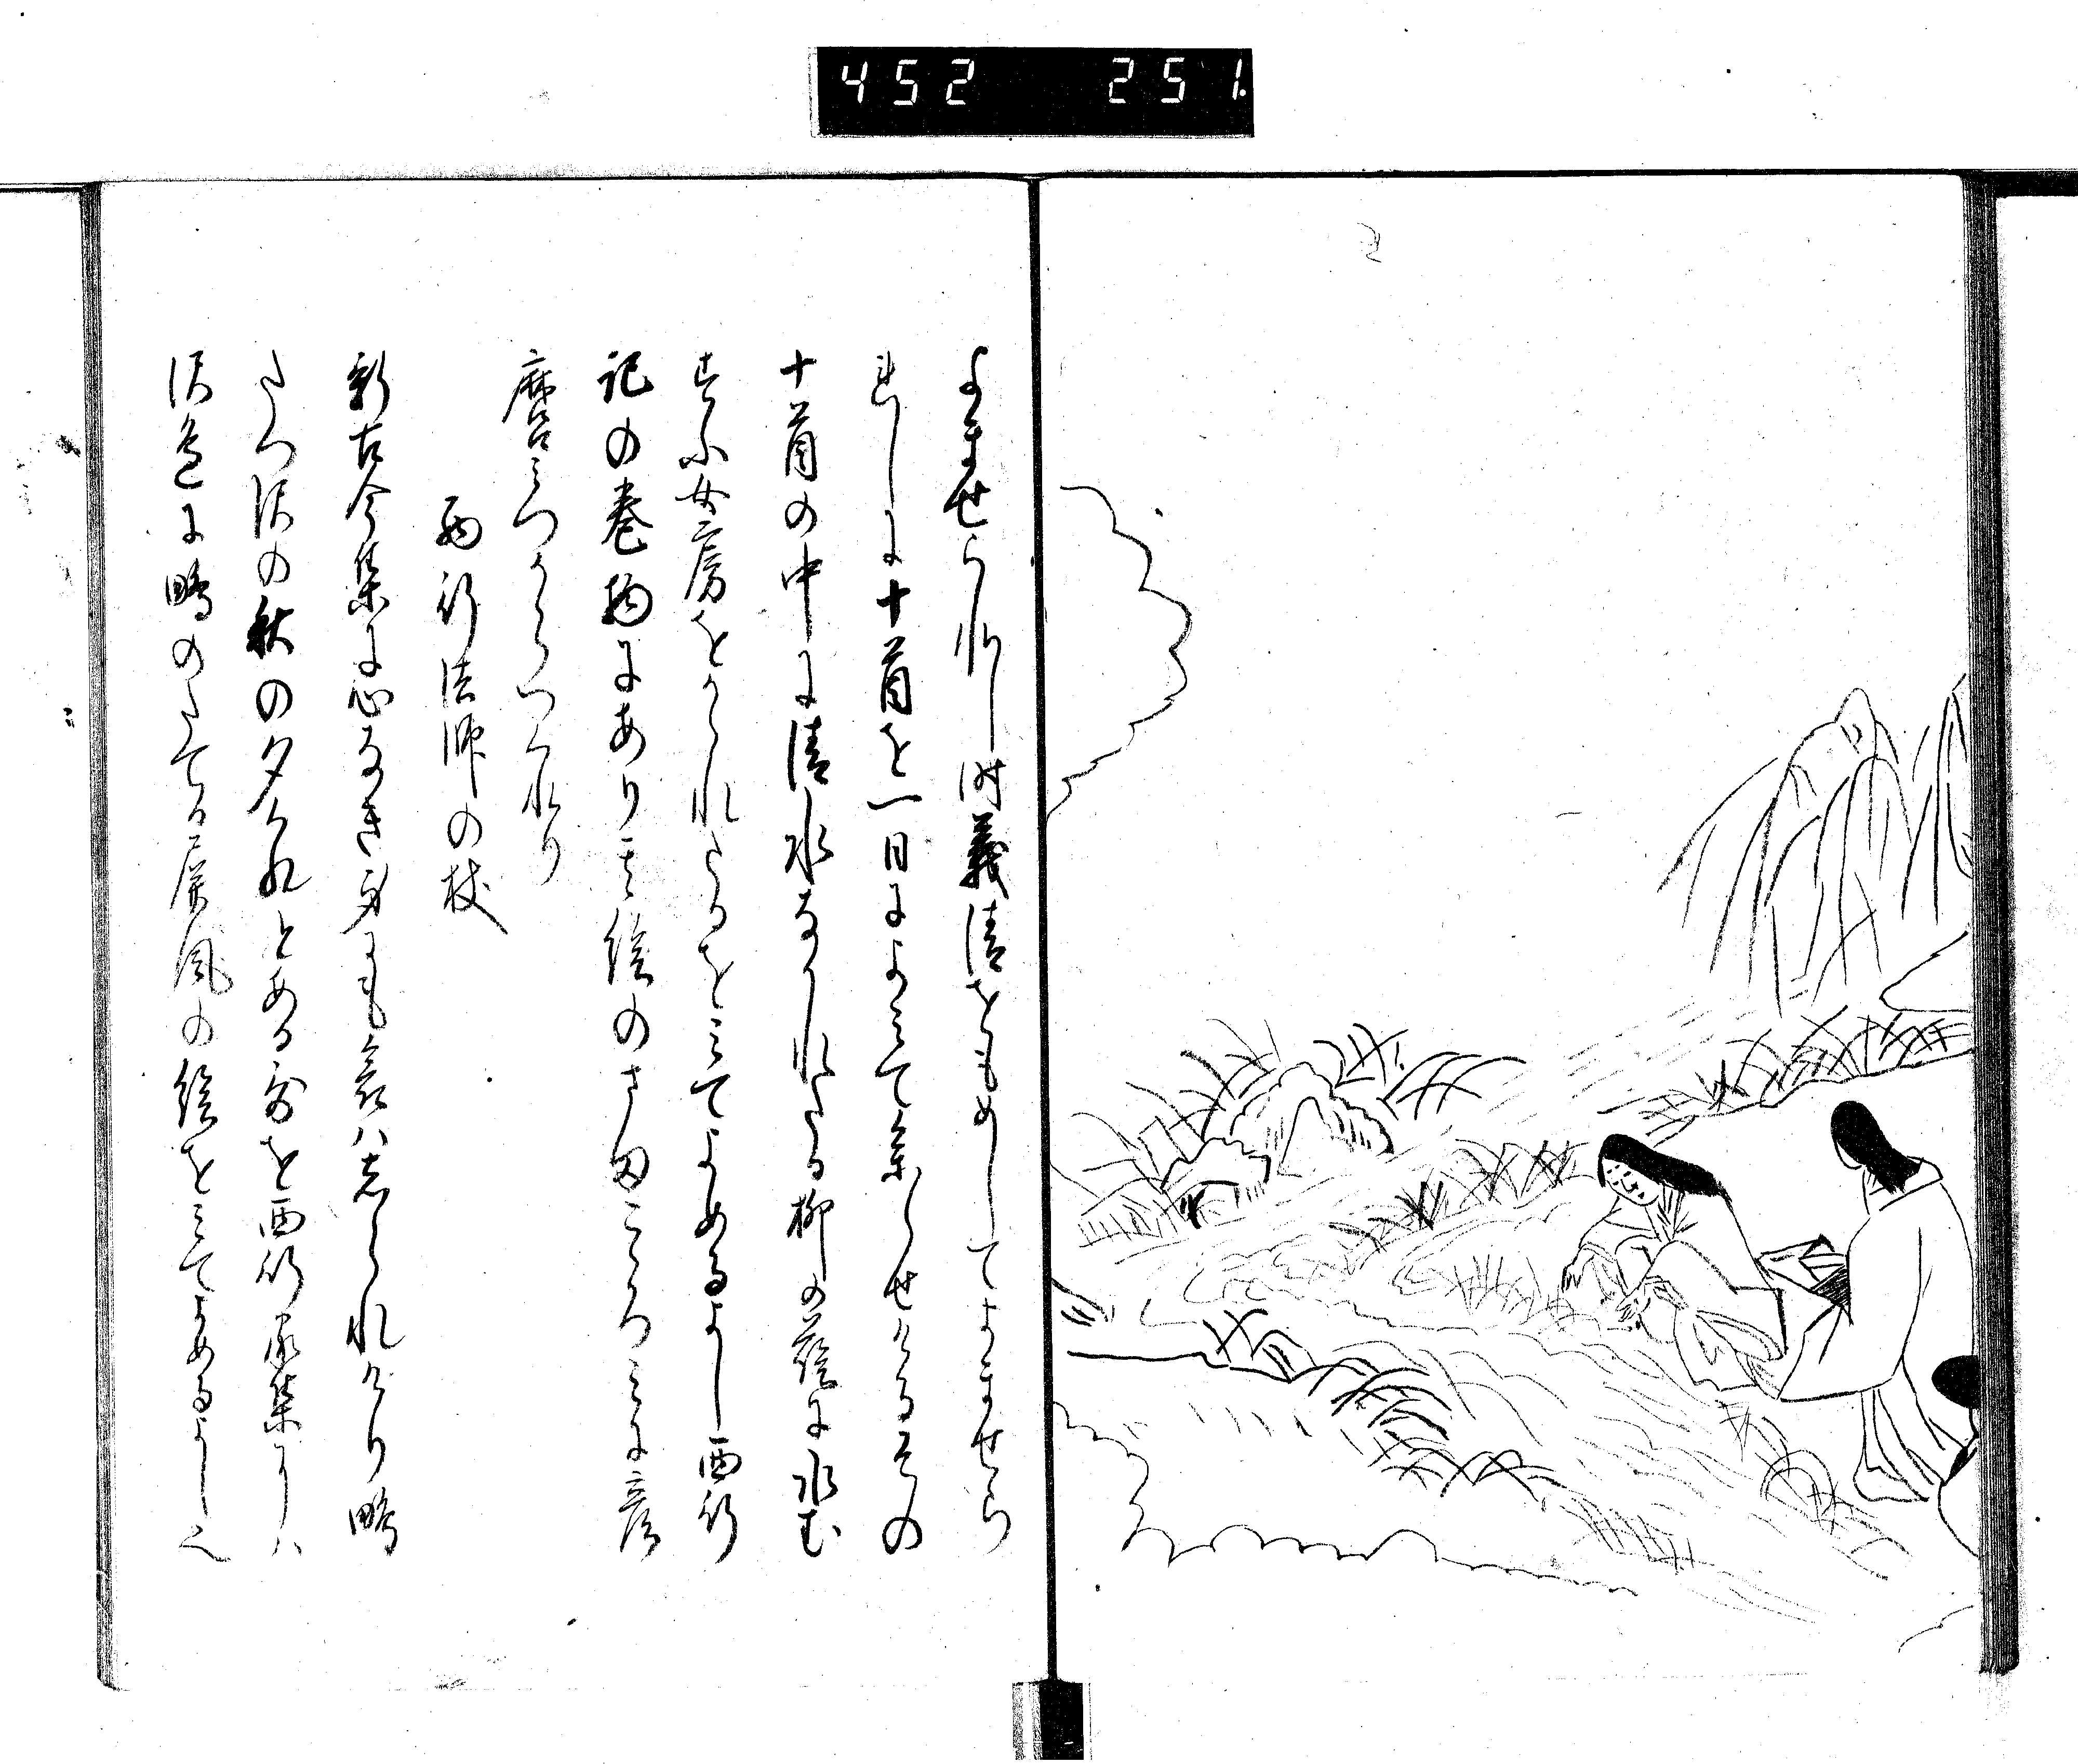 452 251
よませられし時義清をもめしてよませら
れしに十首を一日によみて奉らせけるその
十首の中に清水なかれたる柳の蔭に水む
すふ女房をかゝれたるをみてよめるよし西行
記の巻物にあり其絵のさまこゝろみに彦
麿みつからうつくれり
西行法師の校
新古今集に心なき身にも哀ハしられけり鴫
たつ沢の秋の夕くれとある哥を西行家集にハ
沢邊に鴫のたてる屏風の絵をみてよめるよし也